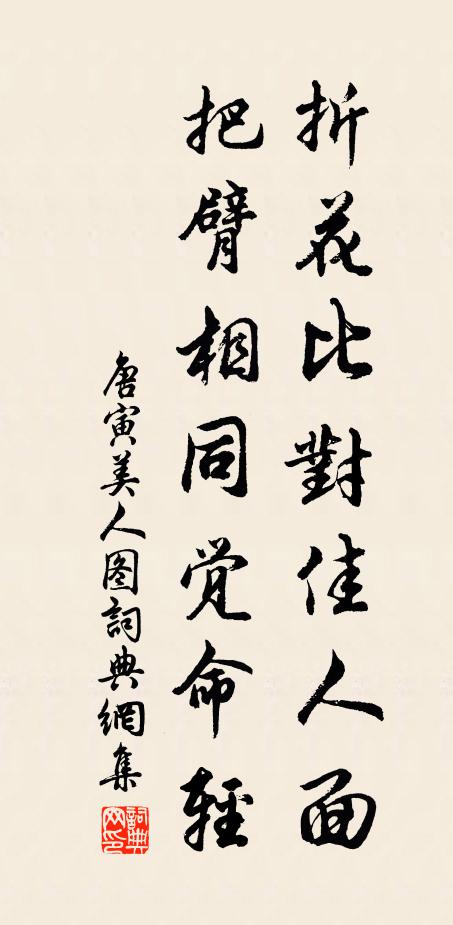 折花比對佳人面
把臂相同觉命輕
唐寅美人图詞典網集
詞典网印